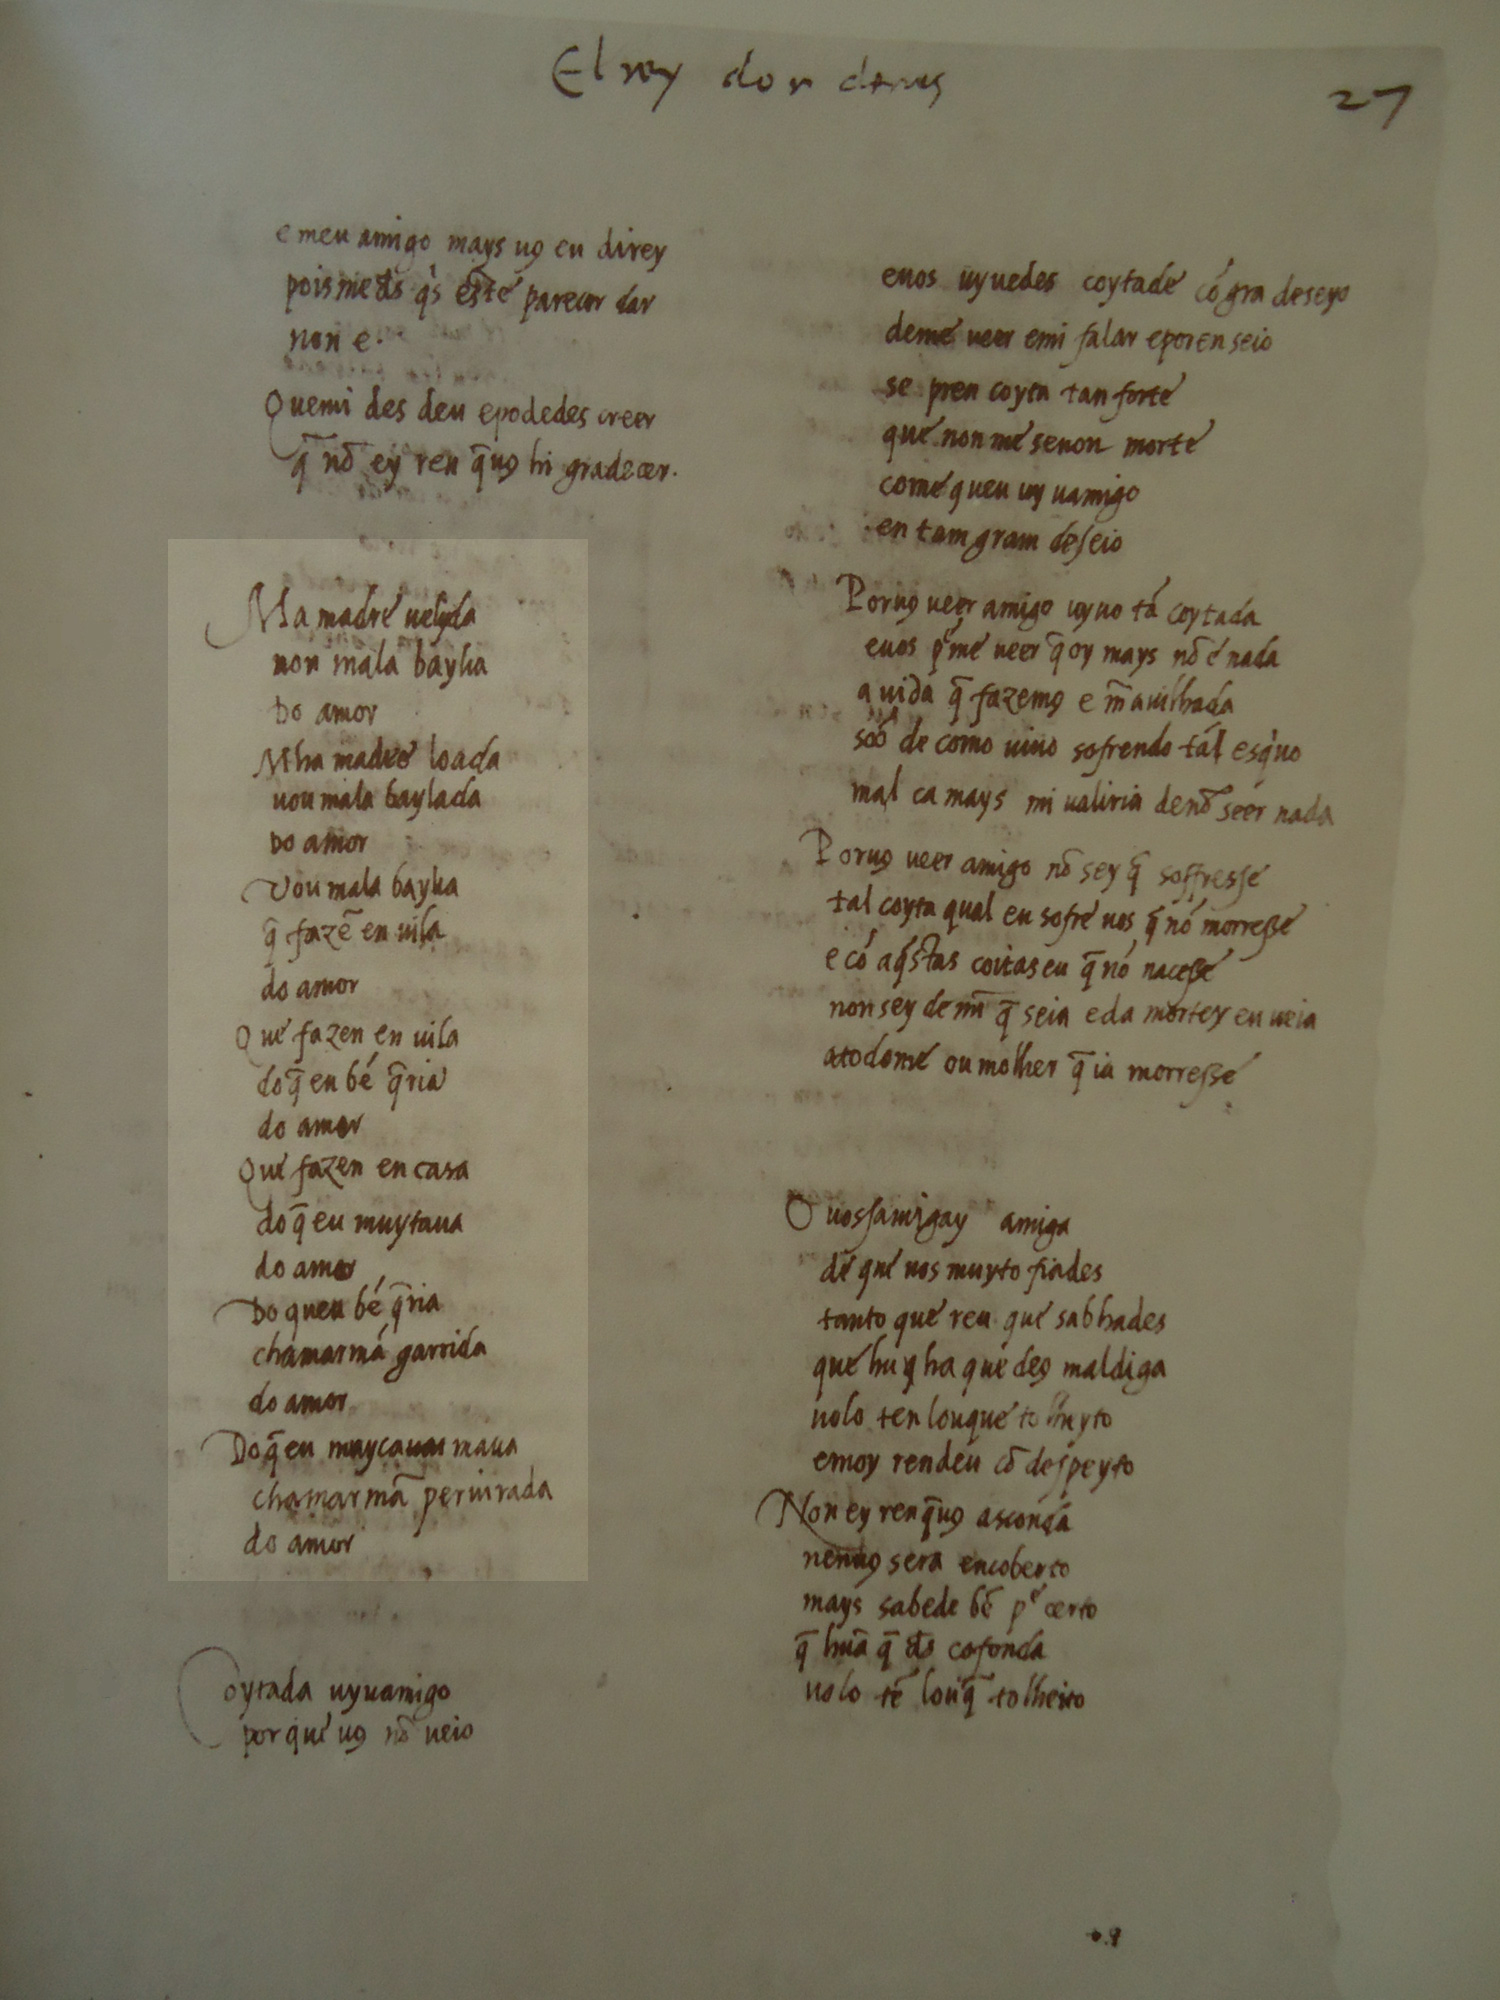 El rey don denis
27
e meu amigo mays uꝯ eu direy
pois me ds̄ qis este parecer dar
non e.
Quemi des deu e podedes creer
q̄ nō ey ren q̄uꝯ hi gradecer.
Ma madre uelyda
non mala baylia
Do amor
Mha madre loada
uou mala baylada
Do amor
Vou mala baylia
q̄ fazē en uila
do amor
Que fazen en uila
do q̄ eu bē q̄ria
do amor
Que fazen en casa
do q̄ eu muytaua
do amor
Do queu bē q̄ria
chamarmā garrida
do amor
Do q̄ eu muy maua
chamarmā periurada
do amor
Coytada uyuamigo
por que uꝯ nō ueio
euos uyuedes coytade cō gra deseyo
deme ueer emi falar eporen seio
se pren coyta tan forte
que non me senon morte
come queu uy uamigo
en tam gram deseio
Poruꝯ ueer amigo uyuo tā coytada
euos peme ueer q̄ oy mays nō e nada
a uida q̄ fazemꝯ e m̄auilhada
soō de como uiuo sofrendo tal esqiuo
mal ca mays mi ualiria denō seer nada
Poruꝯ ueer amigo nō sey q̄ soffresse
tal coyta qual eu sofre uos q̄ nō morresse
e cō aq̄stas coitas eu q̄ nō nacesse
non sey de mī q̄ seia e da mortey en ueia
atodome ou molher q̄ ia morresse
O uossamigay amiga
de que uos muyto fiades
tanto que reu que sabhades
que huꝗ ha que deꝯ maldiga
uolo ten louque tolhyto
emoy rendeu cō despeyto
Non ey ren q̄uꝯ asconda
nenuꝯ sera encoberto
mays sabede bē pe certo
q̄ hūa q̄ ds̄ cofonda
uolo tē louq̄ tolheito